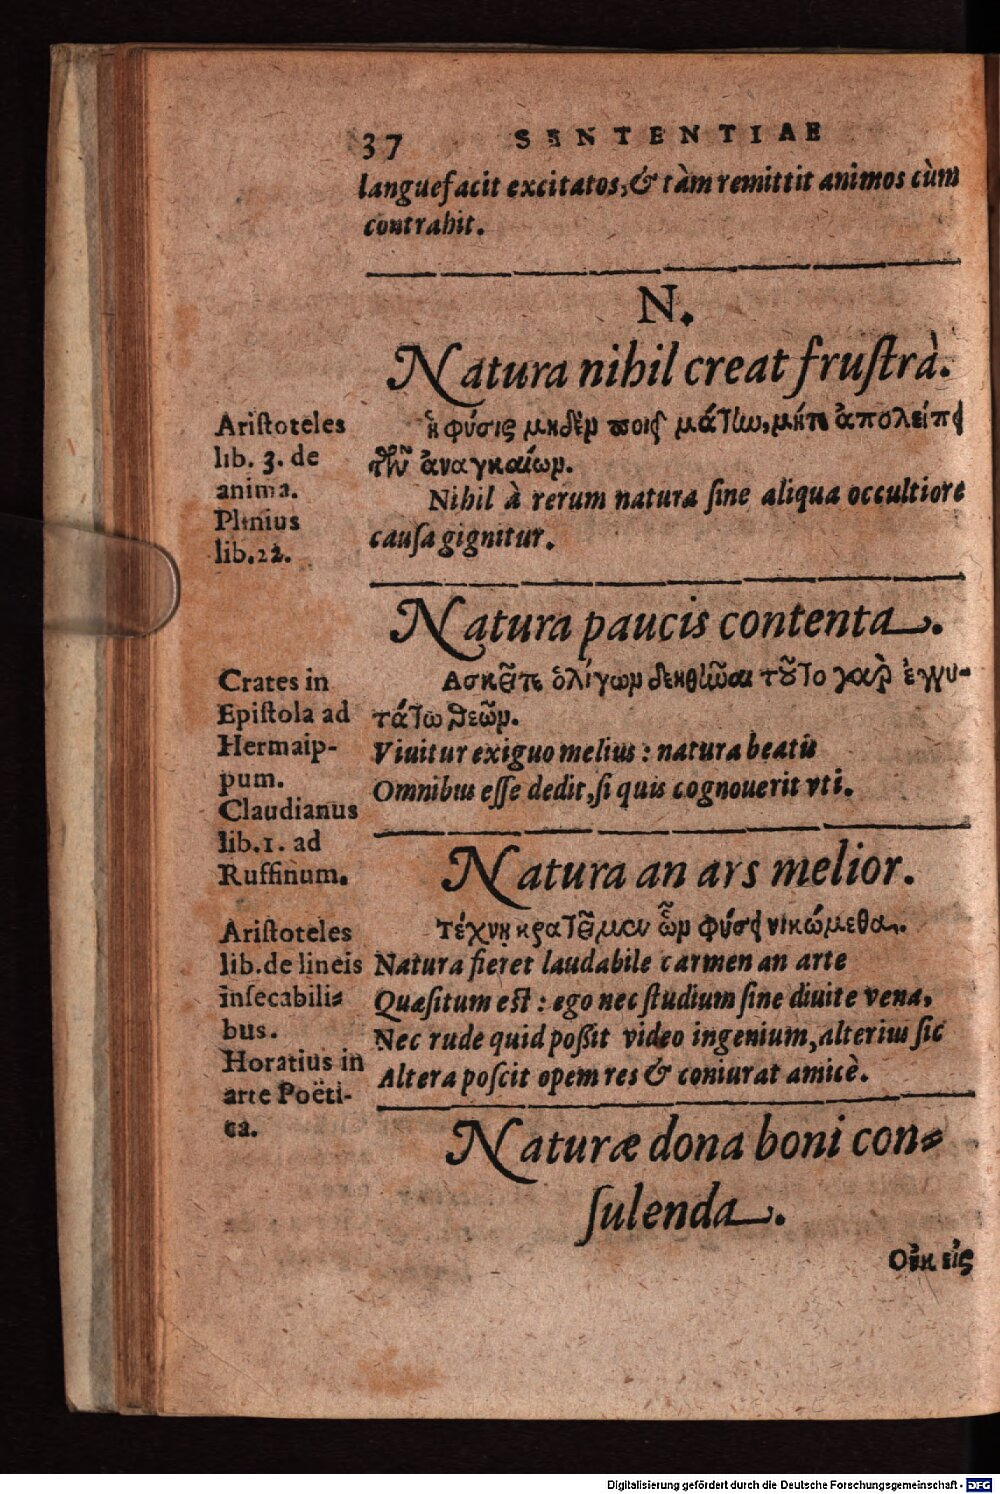 37 SENTENTIAE
languefacit excitatos, & tàm remittit animos cùm
contrahit.
N.
Natura nihil creat frustrà.
Aristoteles
lib. 3. de
anima.
Plinius
lib.22.
ἡ φύσις μηδὲν ποιεῖ μάτω, μήτε ἀπολείπει
τῶν ἀναγκαίων.
Nihil à rerum natura sine aliqua occultiore
causa gignitur.
Natura paucis contenta.
Crates in
Epistola ad
Hermaip-
pum.
Claudianus
lib.1. ad
Ruffinum.
Ασκεῖτε ὀλίγων δεηθῶαι τοῦτο γαρ ἐγγυ-
τάτω θεῶν.
Viuitur exiguo melius: natura beatis
Omnibus esse dedit, si quis cognouerit vti.
Natura an ars melior.
Aristoteles
lib. de lineis
insecabili-
bus.
Horatius in
arte Poëti-
ca.
τέχνῃ κρατοῦμεν ὧν φύσει νικώμεθα.
Natura fieret laudabile carmen an arte
Quæsitum est: ego nec studium sine diuite vena,
Nec rude quid possit video ingenium, alterius sic
Altera poscit opem res & coniurat amicè.
Naturæ dona boni con-
sulenda.
Οὐκ εἰς
Digitalisierung gefördert durch die Deutsche Forschungsgemeinschaft - DFG